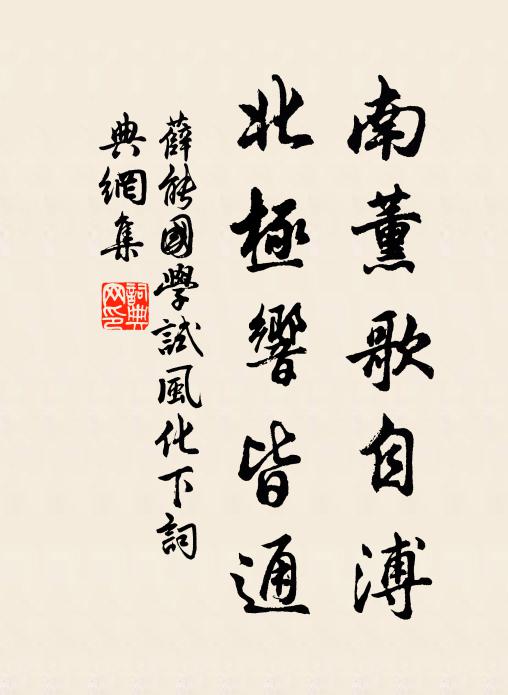 南薰歌自溥
北極響皆通
薛能國學試風化下詞
典網集
詞典
网印